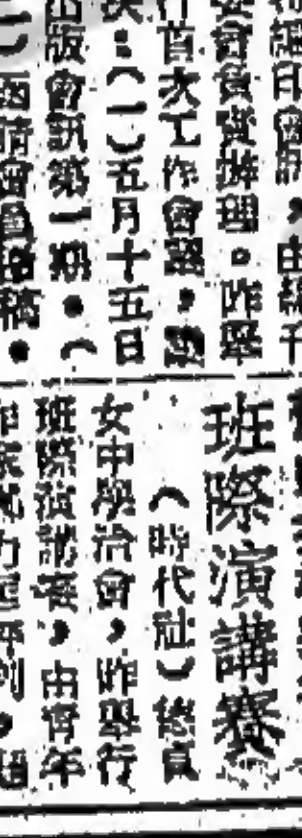 編印會訊，由編刊
委會負責辦理。昨舉
行首次工作會議，議
決：（一）五月十五日
出版會訊第一期。（
二）函請會員投稿。
班際演講賽
（時代社）德貞
女中學治會，昨舉行
班際演講賽，由青年
作家 評判，題